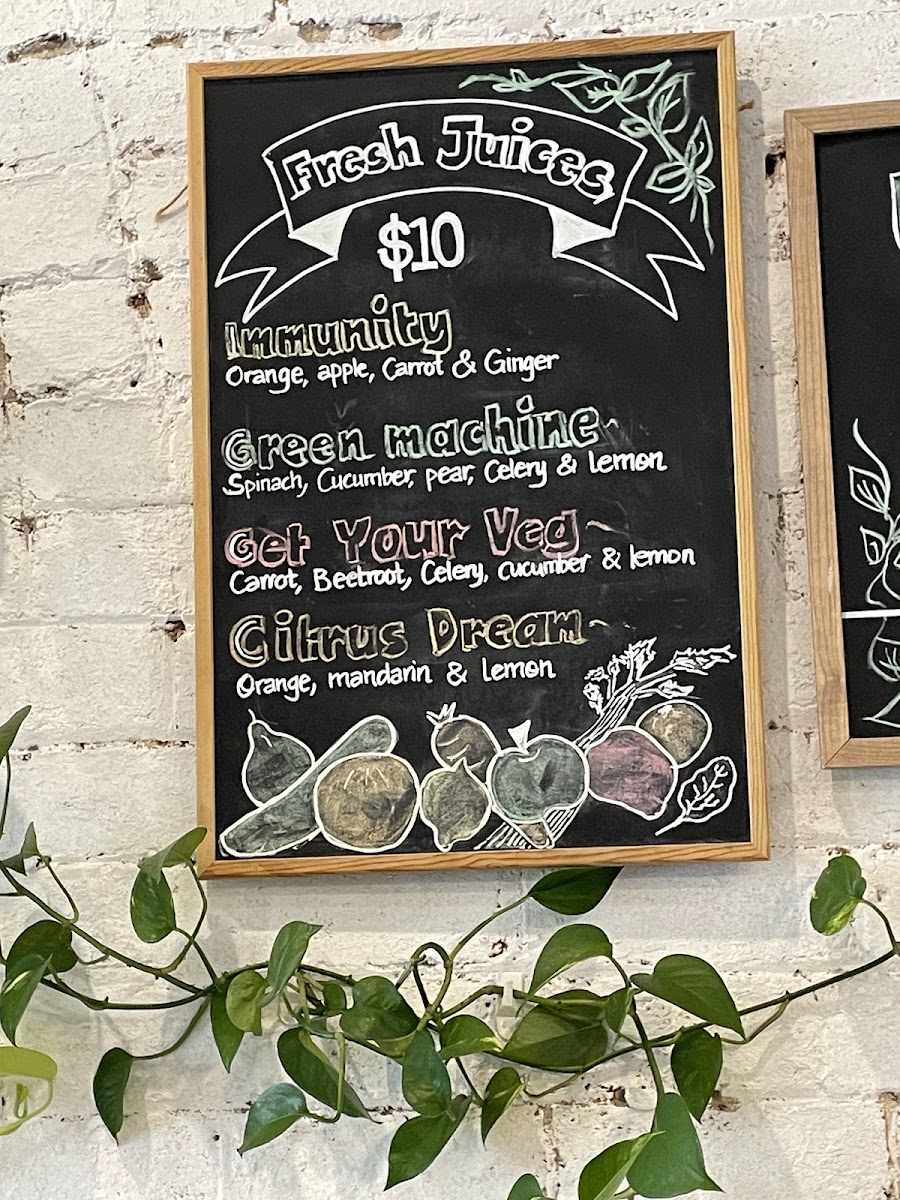 Fresh Juices
$10
Immunity
Orange, apple, Carrot & Ginger
Green machine~
Spinach, Cucumber, pear, Celery & lemon
Get Your Veg~
Carrot, Beetroot, Celery, cucumber & lemon
Citrus Dream~
Orange, mandarin & Lemon